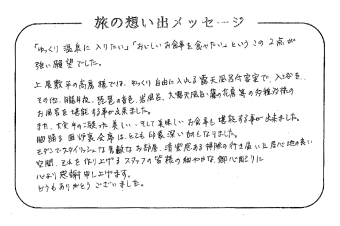 旅の想い出メッセージ
「ゆっくり温泉に入りたい」「おいしいお食事を食べたい」というこの2点が
強い願望でした。
上層数平の高層様では、ゆっくり自由に入れる露天風呂付客室で、入浴を、
その他、貸切、琵琶の音色、岩風呂、大露天風呂、藤の花房 等の多種多様の
お風呂を堪能する事が出来ました。
また、工夫の凝った美しい、そして美味しいお食事も堪能する事が出来ました。
お部屋もとても印象深い物となりました。
モダンでスタイリッシュな素敵なお部屋、清潔感ある掃除の行き届いた居心地の良い
空間、それを作り上げるスタッフの皆様の細やかな御心配りに
心より感謝申し上げます。
どうもありがとうございました。